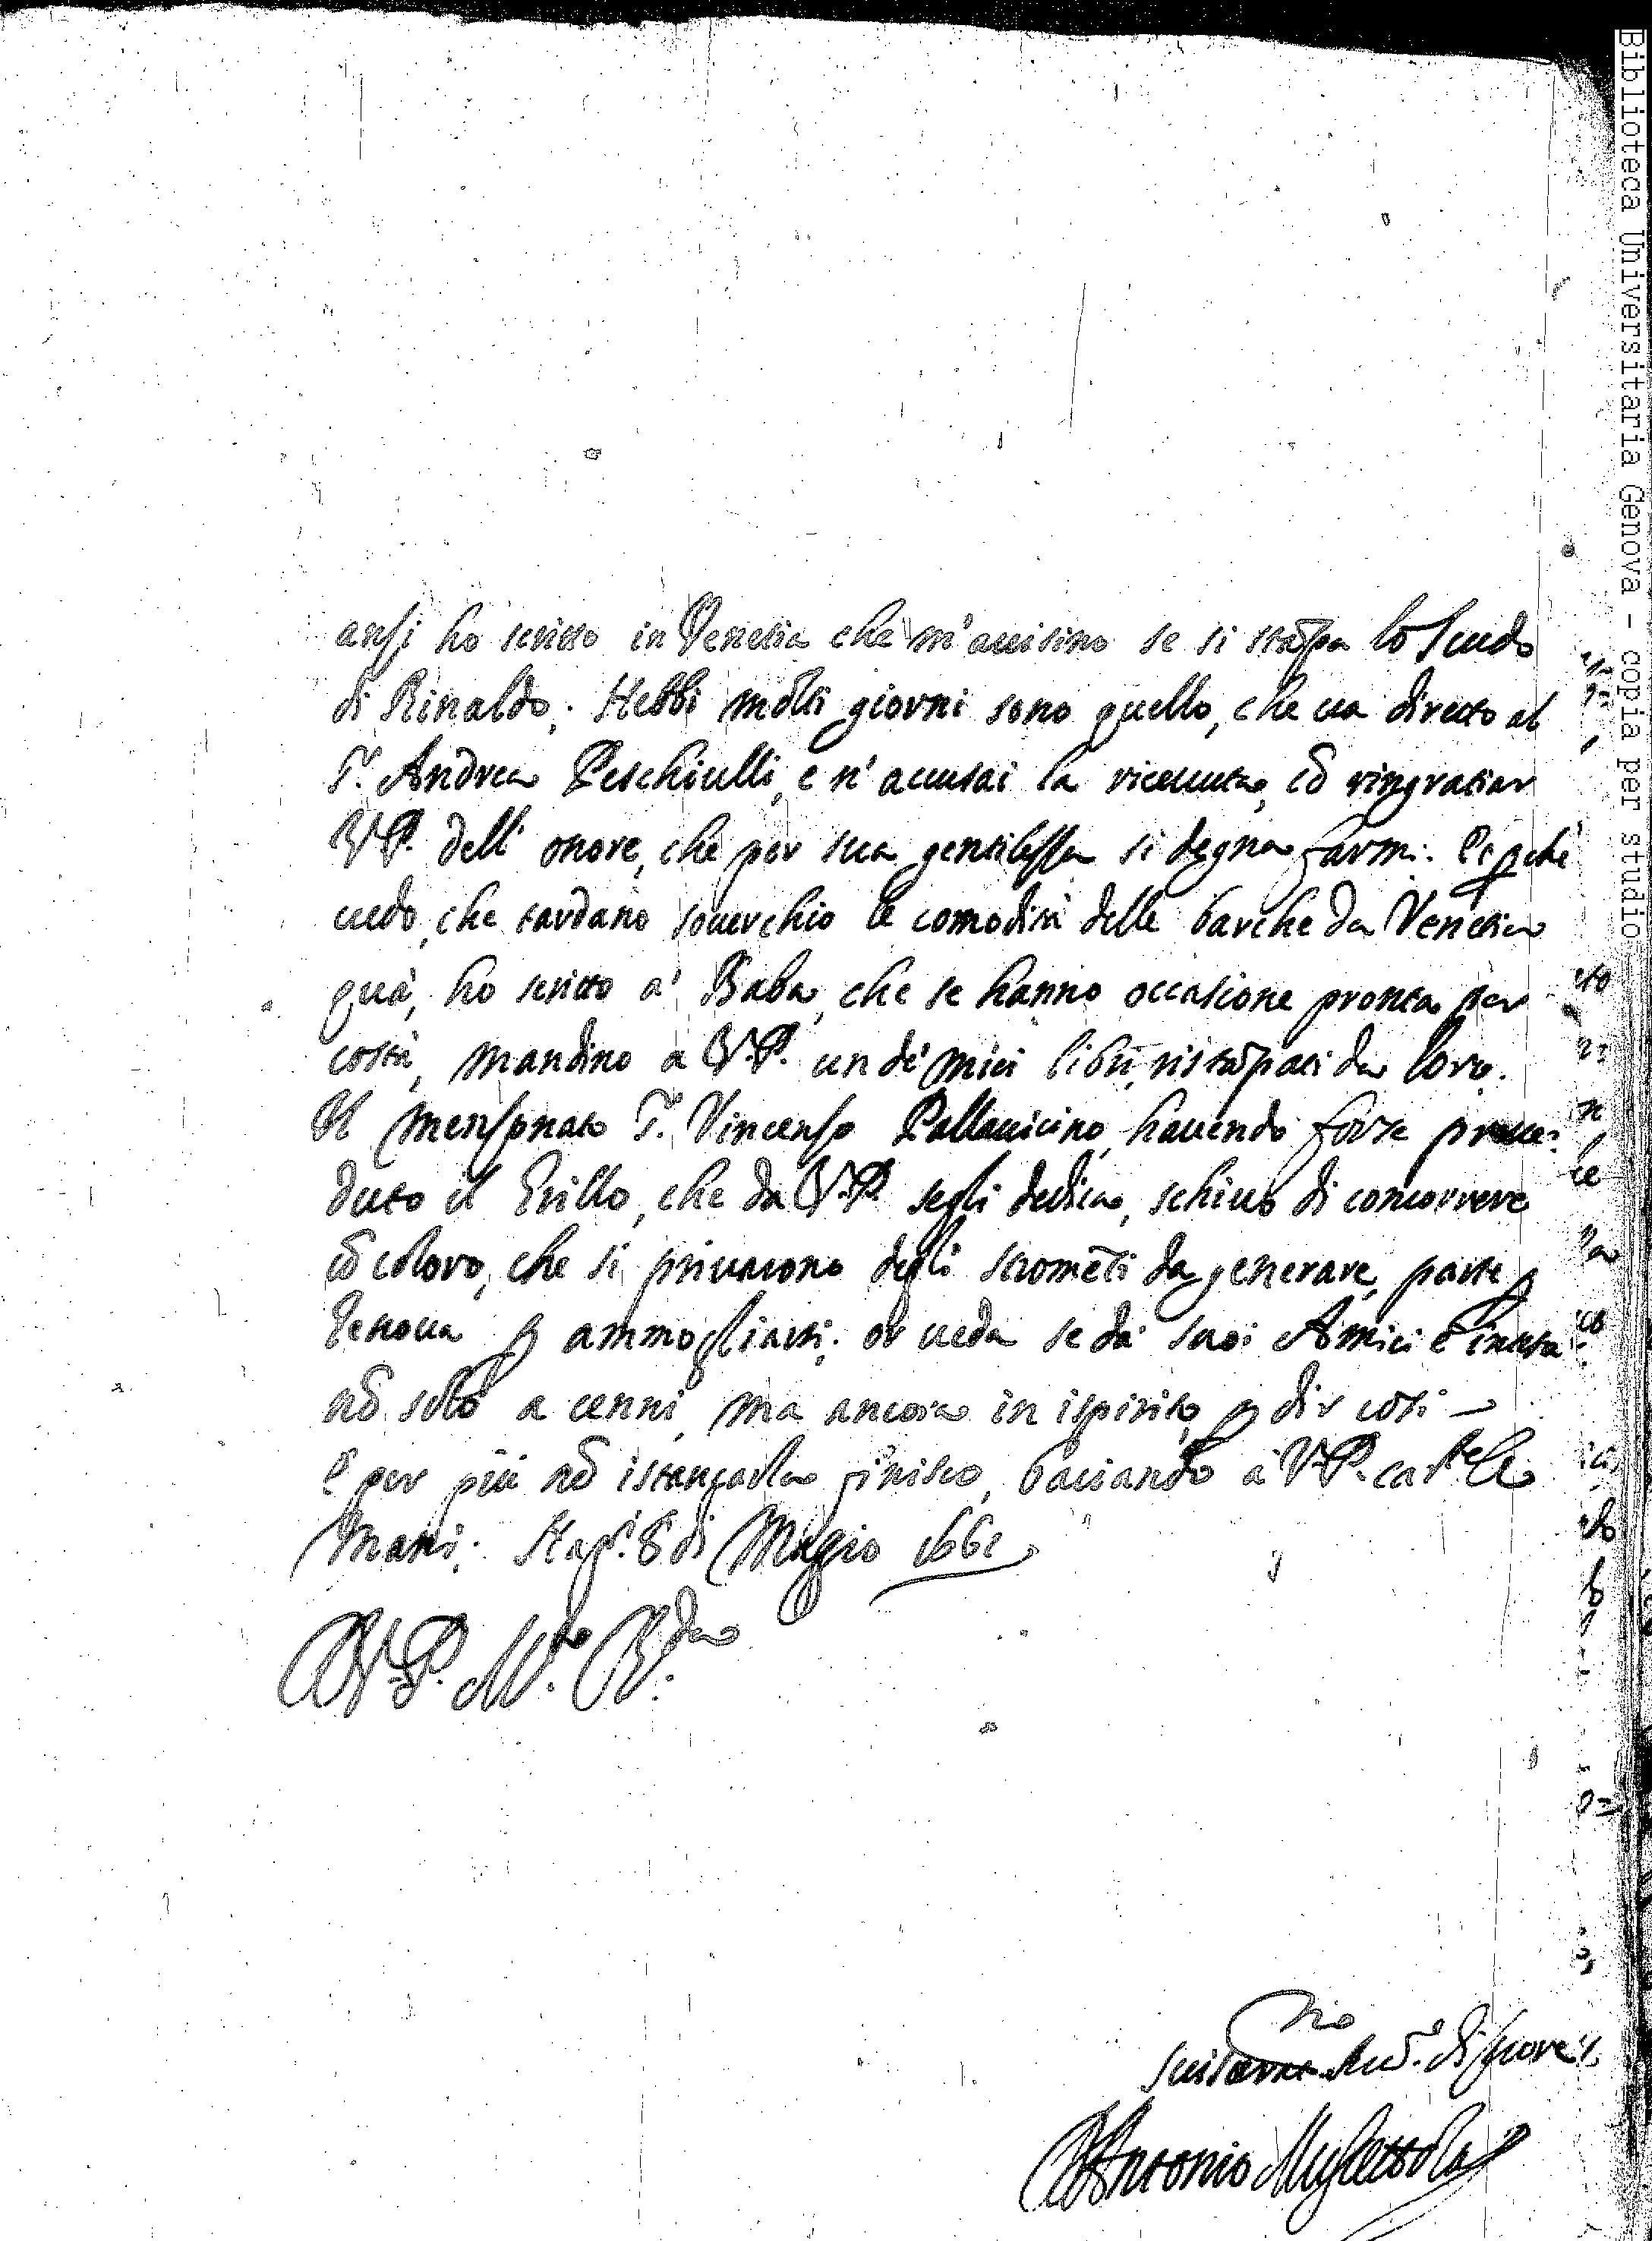 ansi ho scritto in Venetia che m'auisino se si stāpa lo Scudo
di Rinaldo. Hebbi molti giorni sono quello, che ua diretto al
S.r Andrea Peschiulli, e n'accusai la riceuuta, cō ringratiar
V.P. dell'onore, che per sua gentilezza si degna farmi. E pche
uedo, che tardano souerchio le comodità delle barche da Venetia
quà, ho scritto a' Baba, che se hanno occasione pronta per
costà, mandino a V.P. un de' miei libri, ristāpati da loro.
Il menzonato S.r Vincenzo Pallauicino, hauendo forse preue=
duto il Grillo, che da V.P. segli dedica, schiuo di concorrere
cō coloro, che si priuarono degli stromēti da generare, parte p
Genoua p ammogliarsi; or ueda se da' suoi Amici è
nō solo a cenni, ma ancora in ispirito, p dir così
E per più nō istancarla finisco, baciando à V.P. le
mani. Nap. 8 di Magio 1661
D V.P. M.to R.da
Antonio Muscettola
Biblioteca Universitaria Genova - copia per studio